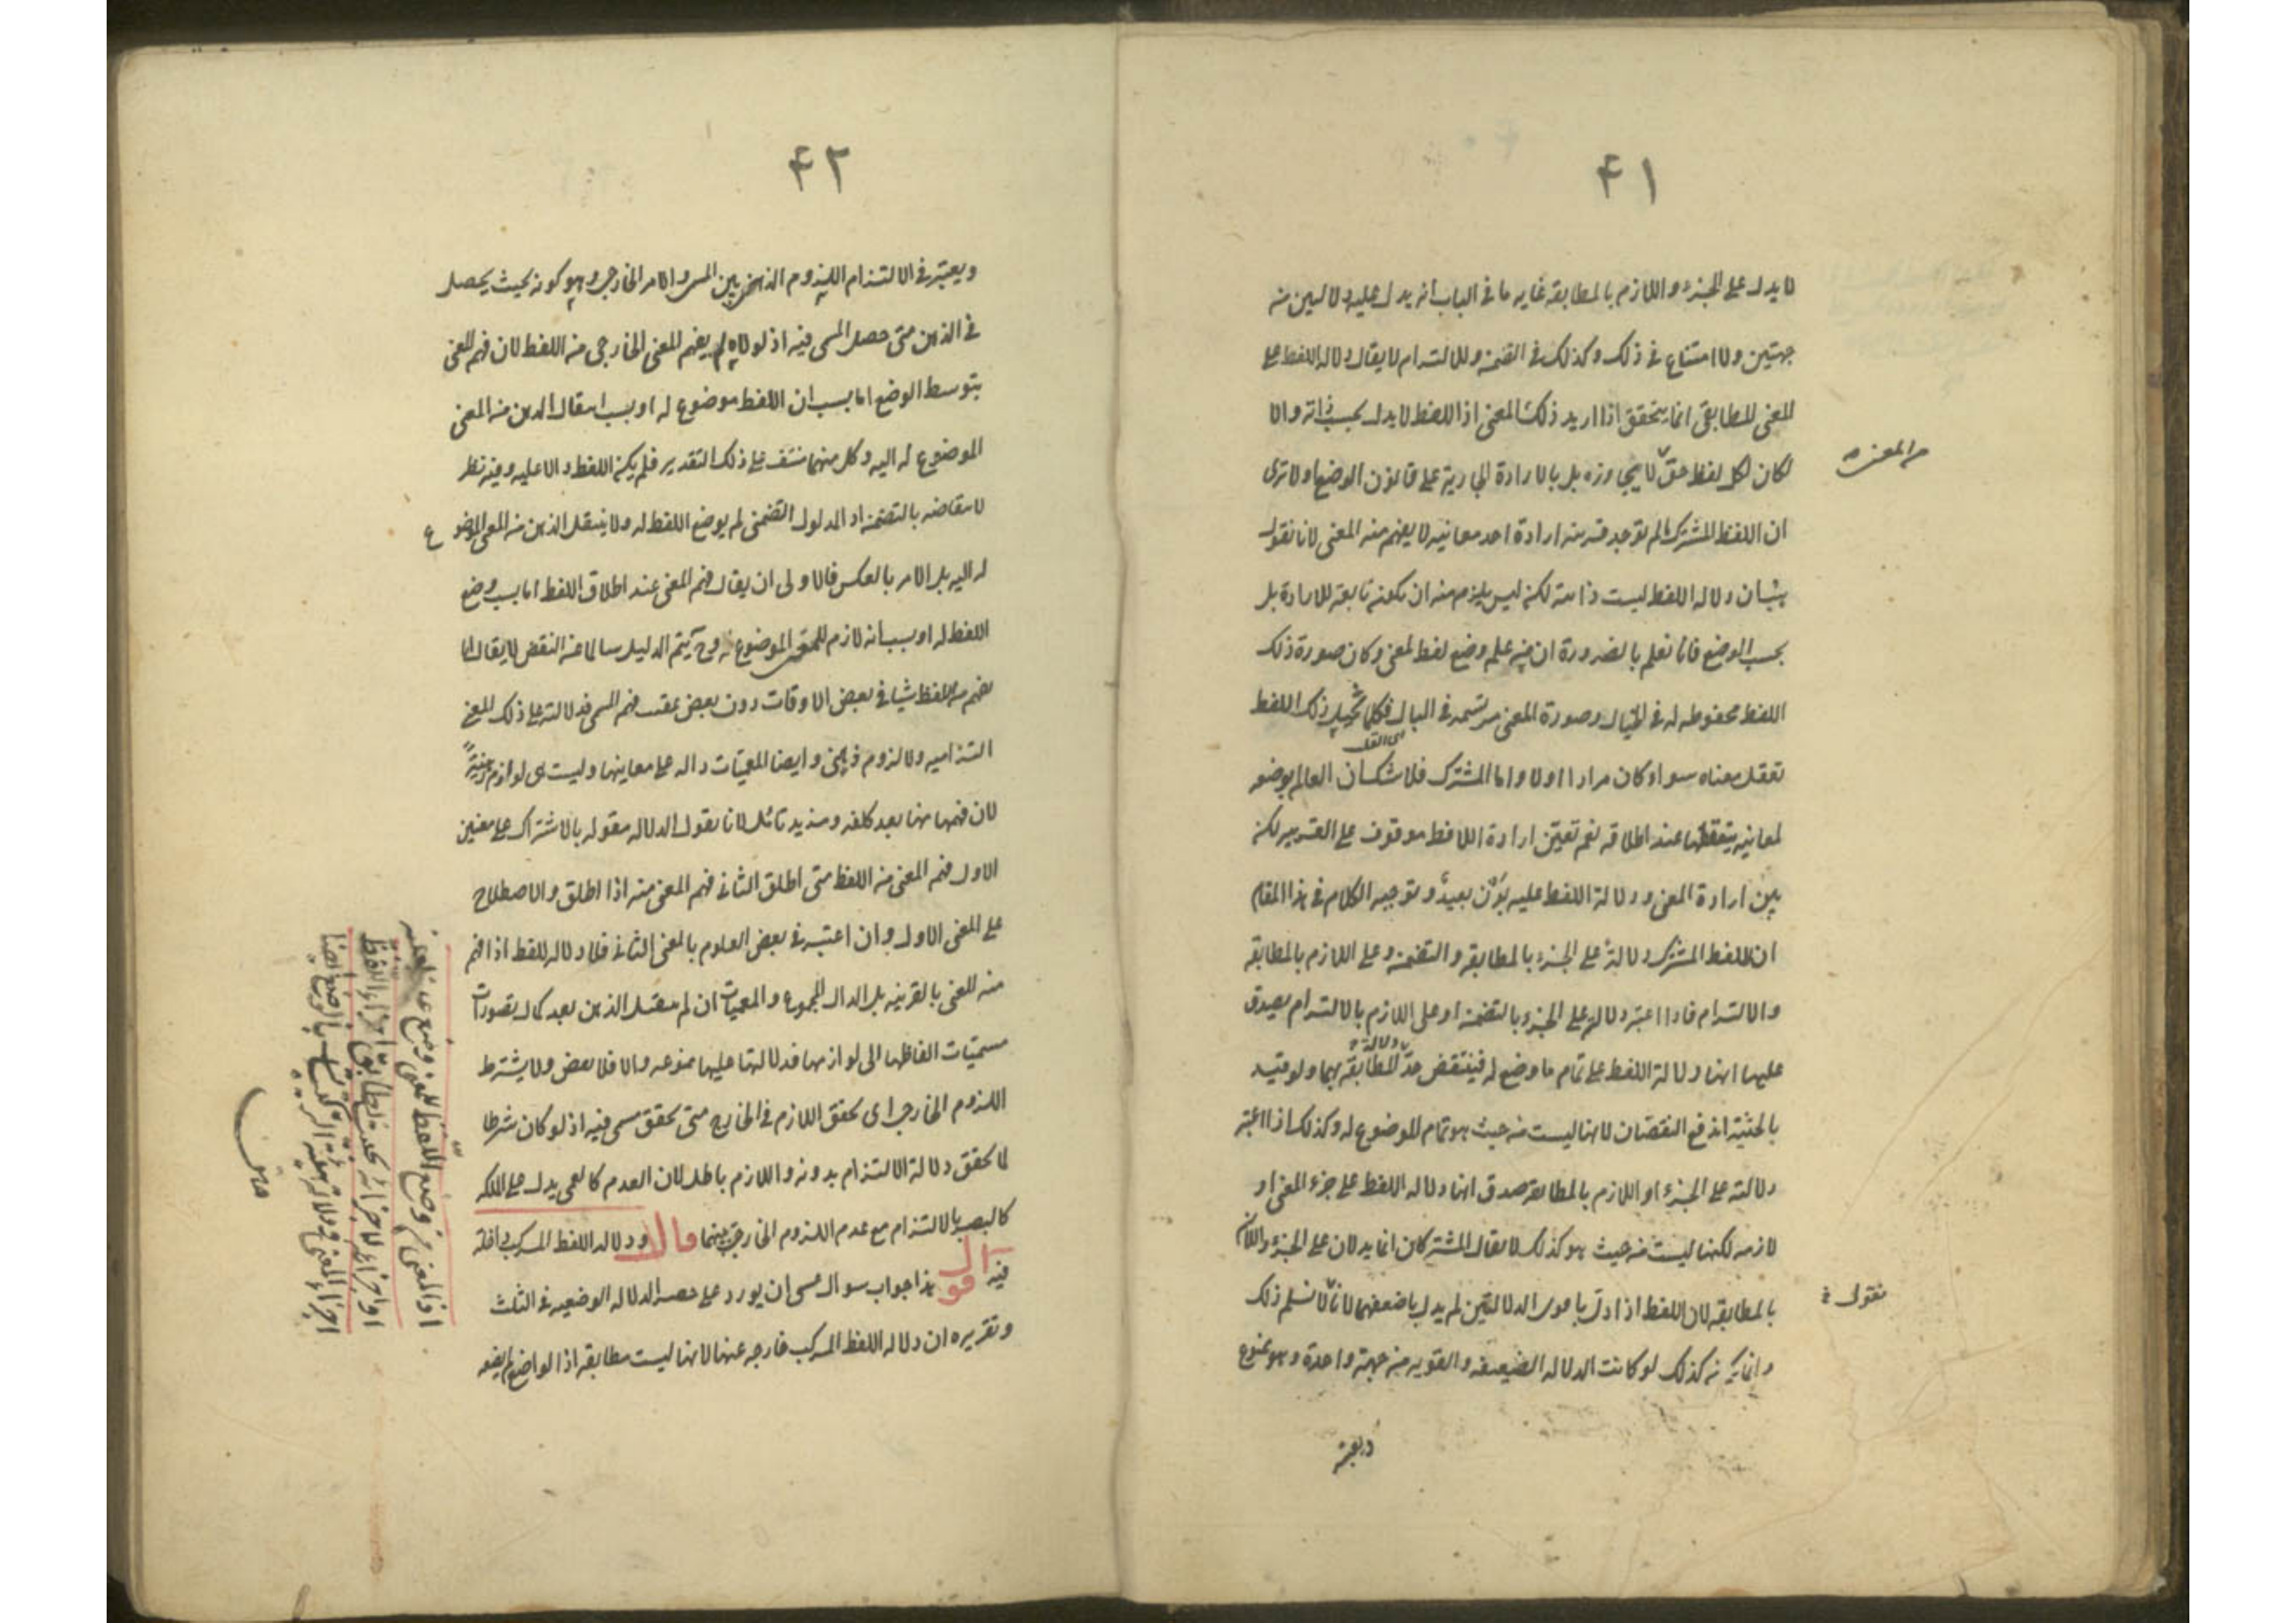 ٤١
لا يدل على الجزء واللازم بالمطابقة غايه ما في الباب انه يدل عليه دلالتين من
جهتين ولا امتناع في ذلك وكذلك في التضمن والالتزام لا يقال دلاله اللفظ على
المعنى المطابقي انما يتحقق اذا اريد ذلك المعنى اذ اللفظ لا يدل بحسب ذاته والا
لكان لكل لفظ حق لا يجاوزه بل بالارادة الجارية على قانون الوضع اولا ترى
من المعنى ه
ان اللفظ المشترك لم توجد قرينه ارادة احد معانيه لا يفهم منه المعنى لانا نقول
هب ان دلاله اللفظ ليست ذاتية لكن ليس يلزم منه ان تكون تابعه للارادة بل
بحسب الوضع فانا نعلم بالضرورة ان من علم وضع لفظ لمعنى وكان صورة ذلك
اللفظ محفوظه له في الخيال وصورة المعنى مرتسمه في البال فكلما تخيل ذلك اللفظ
تعقل معناه سواء كان مرادا اولا واما المشترك فلا شك ان العالم بوضعه
لمعانيه يتعقلها عند اطلاقه نعم تعيّن ارادة اللافظ موقوف على القرينه لكن
بين ارادة المعنى ودلالة اللفظ عليه بَوْن بعيد وتوجيه الكلام في هذا المقام
ان للفظ المشترك دلالة على الجزء بالمطابقه والتضمن وعلى اللازم بالمطابقه
والالتزام فاذا اعتبر دلالته على الجزء بالتضمن او على اللازم بالالتزام يصدق
عليها انها دلالة اللفظ على تمام ما وضع له فينتقض حدّ دلالة المطابقه بهما ولو قيد
بالحيثية اندفع النقضان لانها ليست من حيث هو تمام الموضوع له وكذلك اذا اعتبر
دلالته على الجزء او اللازم بالمطابقه صدق انها دلاله اللفظ على جزء المعنى او
لازمه لكنها ليست من حيث هو كذلك لا يقال المشتركان انما يدلان على الجزء واللازم
بالمطابقه لان اللفظ اذا دل باقوى الدلالتين لم يدل باضعفهما لانا لا نسلم ذلك
نقول
وانما يكون كذلك لو كانت الدلاله الضعيفه والقويه من جهة واحدة وهو ممنوع
ويعتبر
٤٢
ويعتبر في الالتزام اللزوم الذهني بين المسمى والامر الخارجي وهو كونه بحيث يحصل
في الذهن متى حصل المسمى فيه اذ لولاه لم يفهم المعنى الخارجي من اللفظ لان فهم المعنى
بتوسط الوضع اما بسبب ان اللفظ موضوع له او بسبب انتقال الذهن من المعنى
الموضوع له اليه وكل منهما منتف على ذلك التقدير فلم يكن اللفظ دالا عليه وفيه نظر
لانتقاضه بالتضمن اذ المدلول التضمنى لم يوضع اللفظ له ولا ينتقل الذهن من المعنى الموضوع
له اليه بل الامر بالعكس فالاولى ان يقال فهم المعنى عند اطلاق اللفظ اما بسبب وضع
اللفظ له او بسبب انه لازم للمعنى الموضوع له وح يتم الدليل سالما عن النقض لا يقال انا
نفهم من اللفظ شيئا في بعض الاوقات دون بعض عقيب فهم المسمى فدلالته على ذلك المعنى
التزاميه ولا لزوم ذهني وايضا المعميات داله على معانيها وليست هي لوازم ذهنية
لان فهمها منها بعد كلفه ومزيد تامل لانا نقول الدلاله مقوله بالاشتراك على معنيين
الاول فهم المعنى من اللفظ متى اطلق الثاني فهم المعنى منه اذا اطلق والاصطلاح
على المعنى الاول وان اعتبر في بعض العلوم بالمعنى الثاني فلا دلاله للفظ اذا فهم
منه المعنى بالقرينه بل الدال المجموع والمعميات ان لم ينتقل الذهن بعد كمال تصورات
مسميات الفاظها الى لوازمها فدلالتها عليها ممنوعه والا فلا نقض ولا يشترط
اللزوم الخارجي اى تحقق اللازم في الخارج متى تحقق مسمى فيه اذ لو كان شرطا
لما تحقق دلالة الالتزام بدونه واللازم باطل لان العدم كالعمى يدل على الملكه
كالبصر بالالتزام مع عدم اللزوم الخارجي بينهما قال ودلاله اللفظ المركب داخلة
فيه اقول هذا جواب سوال عسى ان يورد على حصر الدلاله الوضعيه في الثلث
وتقريره ان دلاله اللفظ المركب خارجه عنها لانها ليست مطابقه اذ الواضع لم يضعه